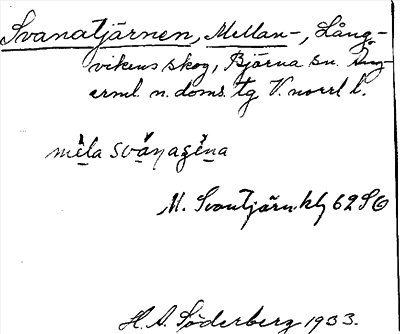 Svanatjärnen, Mellan-, Lång-
vikens skog, Björna sn. Ång-
erml. n. doms. tg V. norrl l.
M. Svantjärn kbl 62 S
H. A. Söderberg 1933.